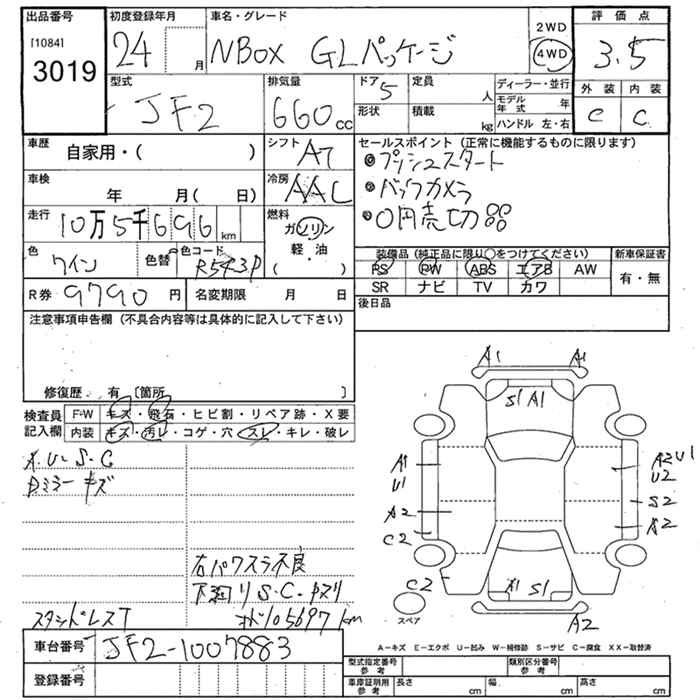 出品番号 初度登録年月 車名・グレード 評価点
[1084] 3019 24 月 NBox GLパッケージ 2WD 4WD 3.5
型式 JF2 排気量 660 cc ドア 5 定員 人 ディーラー・並行 外装 内装
形状 積載 kg モデル年式 年 C C
ハンドル 左・右
車歴 自家用・( ) シフト AT セールスポイント (正常に機能するものに限ります)
●プッシュスタート
車検 年 月( 日) 冷房 AAC ●バックカメラ
走行 10万5千696 km 燃料 ガソリン ●0円売切
軽・油
( )
色 ワイン 色替 色コード R543P
装備品 (純正品に限り〇をつけてください) 新車保証書
PS PW ABS エアB AW 有・無
SR ナビ TV カワ
R券 9790 円 名変期限 月 日 後日品
注意事項申告欄 (不具合内容等は具体的に記入して下さい)
修復歴・ 有 〔箇所 〕
検査員記入欄 F-W キズ・飛石・ヒビ割・リペア跡・X要
内装 キズ・汚レ・コゲ・穴・スレ・キレ・破レ
A・U・S・C
Dミラーキズ
右パワスラ不良
下廻りS.C.キズリ
スタッドレスT オド105697 km
A1 A1
S1 A1
A1 U1 A2 U1 U2
A2 S2
C2 A2
C2 A1 S1
スペア A2
車台番号 JF2-1007883
登録番号
A-キズ E-エクボ U-凹み W-補修跡 S-サビ C-腐食 XX-取替済
型式指定番号 参考 類別区分番号 参考
車庫証明用 参考 長さ cm 幅 cm 高さ cm